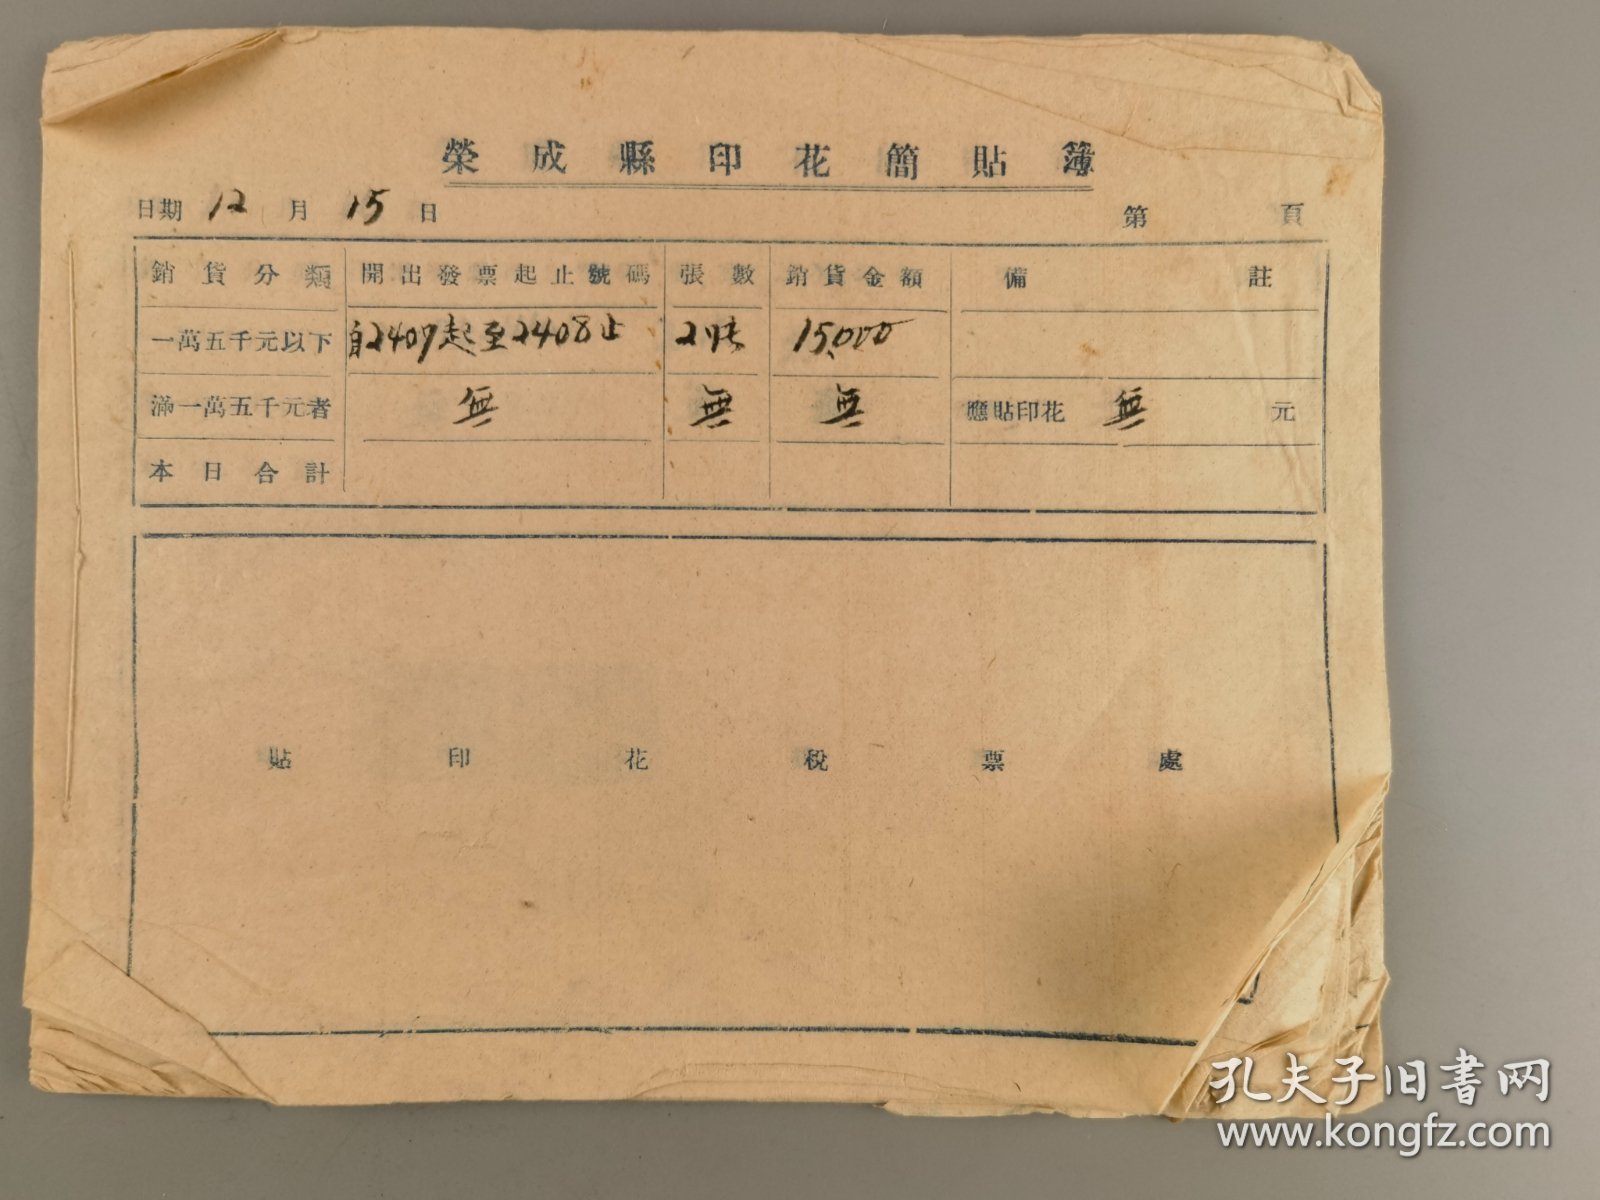 榮成縣印花簡貼簿
日期 12 月 15 日 第 頁
銷貨分類 開出發票起止號碼 張數 銷貨金額 備註
一萬五千元以下 自2407起至2408止 2张 15,000
滿一萬五千元者 無 無 無 應貼印花 無 元
本日合計
貼印花稅票處
孔夫子旧书网
www.kongfz.com